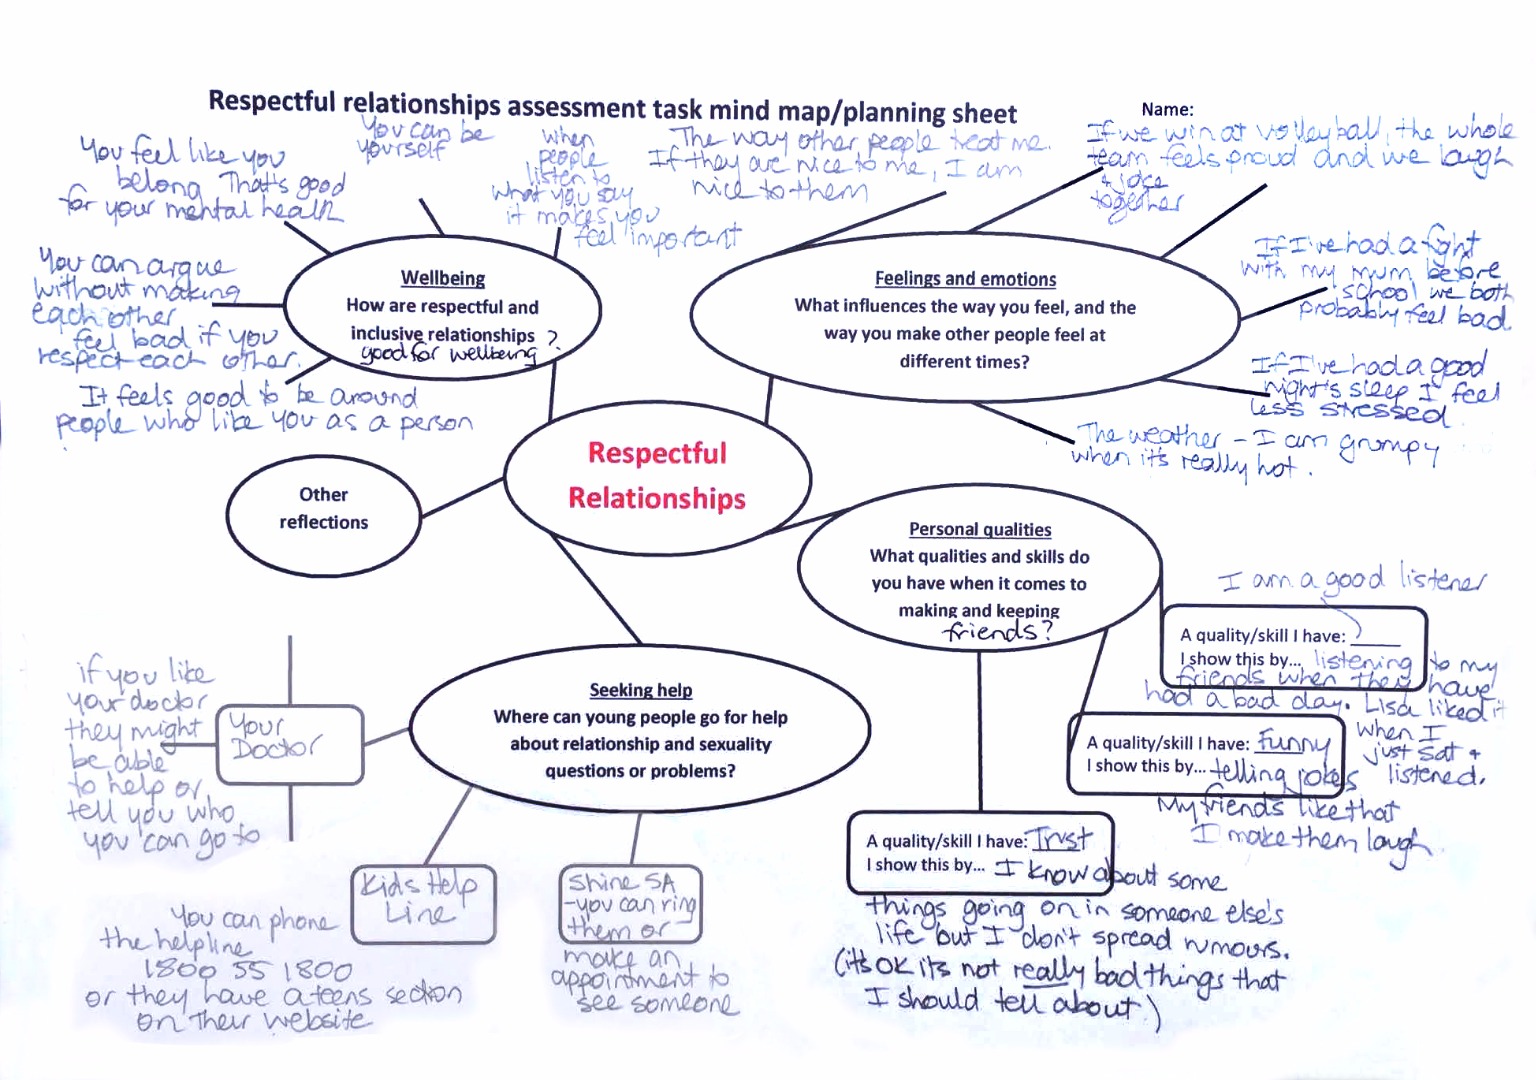 Respectful relationships assessment task mind map/planning sheet
Name:
You feel like you
belong. That's good
for your mental health
You can be
yourself
when
people
listen to
what you say
it makes you
feel important
You can argue
without making
each other
feel bad if you
respect each other.
It feels good to be around
people who like you as a person
Wellbeing
How are respectful and
inclusive relationships ?
good for wellbeing
The way other people treat me.
If they are nice to me, I am
nice to them
If we win at volleyball, the whole
team feels proud and we laugh
+ joke
together
If I've had a fight
with my mum before
school we both
probably feel bad
If I've had a good
night's sleep I feel
less stressed
The weather - I am grumpy
when it's really hot.
Feelings and emotions
What influences the way you feel, and the
way you make other people feel at
different times?
Respectful
Relationships
Other
reflections
Personal qualities
What qualities and skills do
you have when it comes to
making and keeping
friends?
I am a good listener
A quality/skill I have:
I show this by... listening to my
friends when they have
had a bad day. Lisa liked it
when I
just sat +
listened.
A quality/skill I have: Funny
I show this by... telling jokes
My friends like that
I make them laugh.
A quality/skill I have: Trust
I show this by... I know about some
things going on in someone else's
life but I don't spread rumours.
(it's OK its not really bad things that
I should tell about)
Seeking help
Where can young people go for help
about relationship and sexuality
questions or problems?
Your
Doctor
if you like
your doctor
they might
be able
to help or
tell you who
you can go to
Kids Help
Line
You can phone
the helpline
1800 55 1800
or they have a teens section
on their website
Shine SA
-you can ring
them or
make an
appointment to
see someone